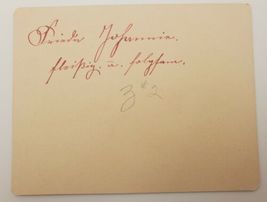 Frieda Johannie.
fleißig. u. folgsam.
3 # 2